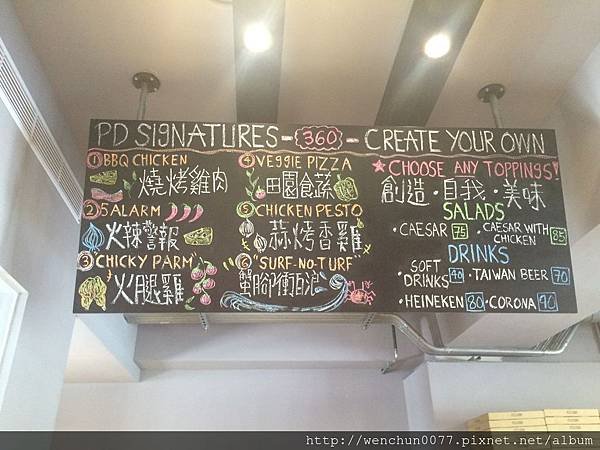 PD SIGNATURES - 360 - CREATE YOUR OWN
① BBQ CHICKEN
燒烤雞肉
② 5 ALARM
火辣警報
③ CHICKY PARM
火腿雞
④ VEGGIE PIZZA
田園食蔬
⑤ CHICKEN PESTO
蒜烤香雞
⑥ "SURF-NO-TURF"
蟹腳衝百浪
★ CHOOSE ANY TOPPINGS!
創造・自我・美味
SALADS
・CAESAR 75 ・CAESAR WITH CHICKEN 85
DRINKS
・SOFT DRINKS 40 ・TAIWAN BEER 70
・HEINEKEN 80 ・CORONA 90
http://wenchun0077.pixnet.net/album